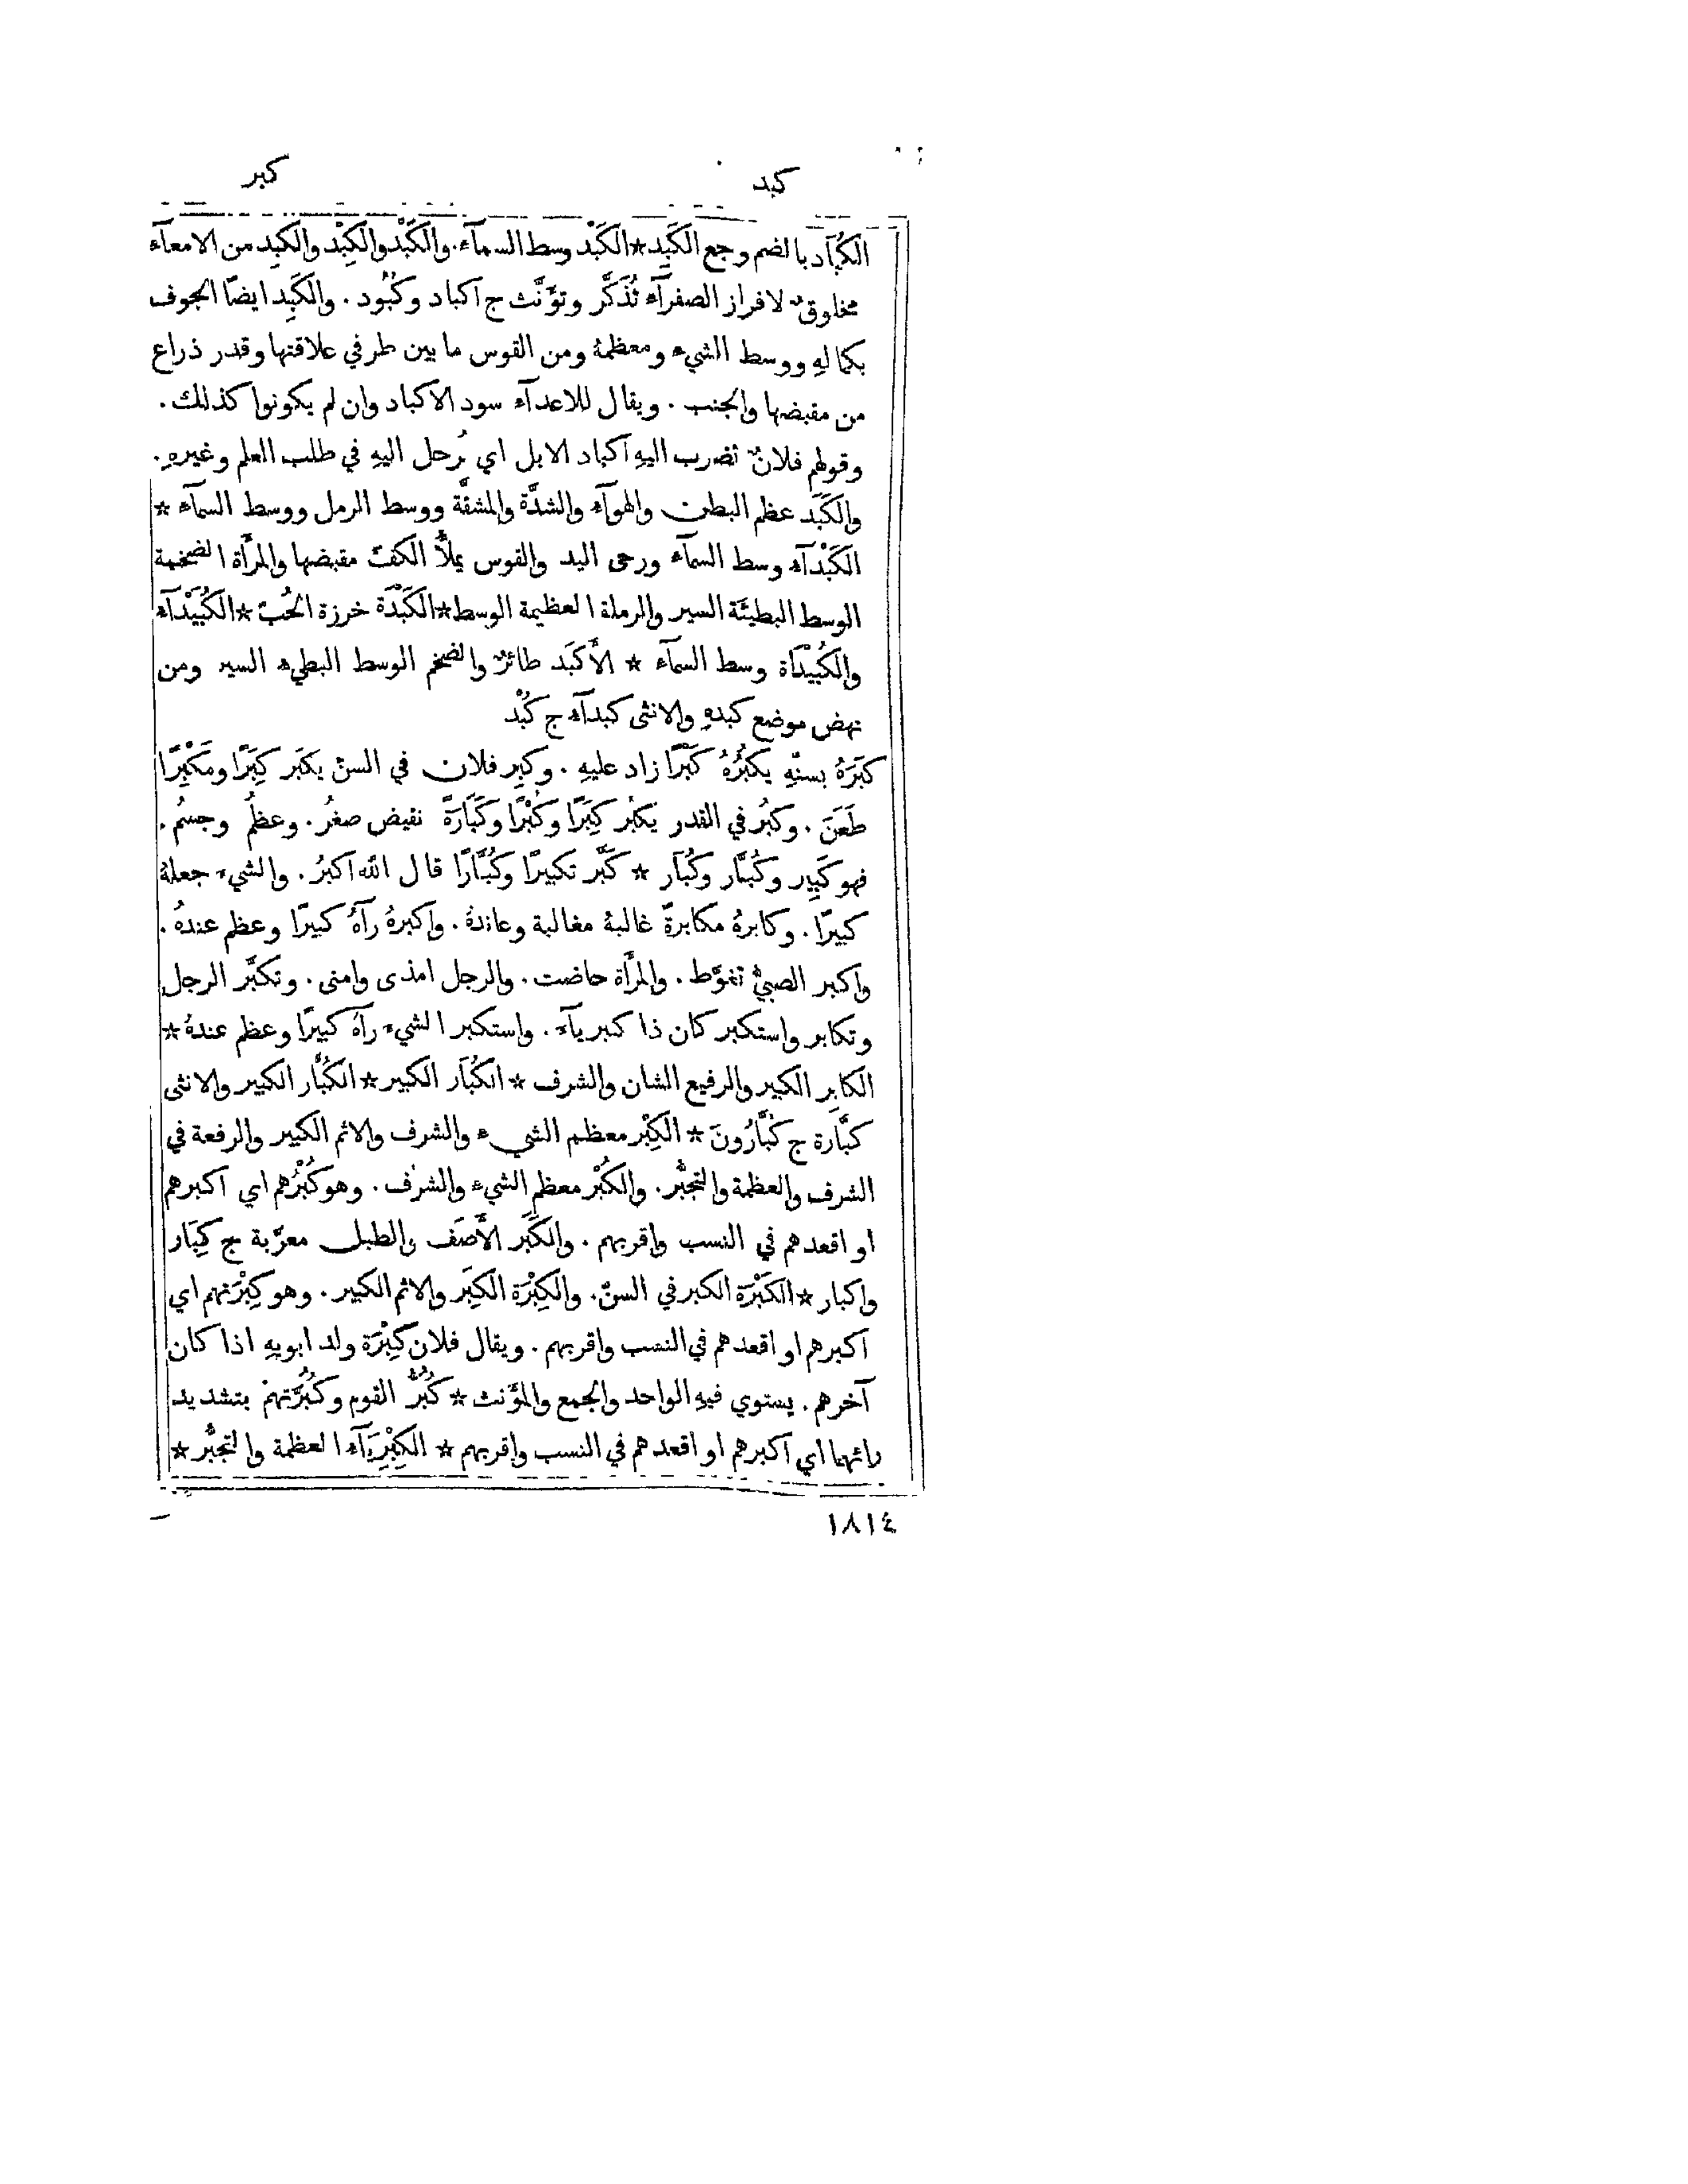 كبد
كبر
الكُبَآد بالضم وجع الكَبِد * الكَبْد وسط السمآء. والكَبْد والكِبْد والكَبِد من الامعآء
مخلوقٌ لافراز الصفرآء تُذَكَّر وتؤنَّث ج اكباد وكُبُود. والكَبِد ايضًا الجوف
بكمالهِ ووسط الشيء ومعظمهُ ومن القوس ما بين طرفي علاقتها وقدر ذراع
من مقبضها والجنب. ويقال للاعدآء سود الاكباد وان لم يكونوا كذلك.
وقولهم فلانٌ تضرب اليهِ اكباد الابل اي يُرحل اليهِ في طلب العلم وغيرهِ.
والكَبَد عظم البطن والهوآء والشدَّة والمشقَّة ووسط الرمل ووسط السمآء *
الكَبْدآء وسط السمآء ورحى اليد والقوس يملأُ الكفّ مقبضها والمرأَة الضخمة
الوسط البطيئَة السير والرملة العظيمة الوسط * الكَبْدَة خرزة الحُبّ * الكُبَيْدآء
والكُبَيْدَاة وسط السمآء * الأَكْبَد طائرٌ والضخم الوسط البطيء السير ومن
نهض موضع كبدهِ والانثى كبدآء ج كُبْد
كَبَرَهُ بسنّهِ يكبُرُهُ كَبْرًا زاد عليهِ. وكبِر فلان في السنّ يكبَر كِبَرًا ومَكْبِرًا
طَعَنَ. وكبُر في القدر يكبُر كِبَرًا وكُبْرًا وكَبَارَةً نقيض صغُر. وعظُم وجسُم.
فهو كَبِير وكُبَّار وكُبَار * كَبَّر تكبيرًا وكُبَّارًا قال الله اكبرُ. والشيء جعلهُ
كبيرًا. وكابرهُ مكابرةً غالبهُ مغالبة وعاندهُ. واكبرهُ رآهُ كبيرًا وعظم عندهُ.
واكبر الصبيُّ تغوَّط. والمرأَة حاضت. والرجل امذى وامنى. وتكبَّر الرجل
وتكابر واستكبر كان ذا كبريآء. واستكبر الشيء رآهُ كبيرًا وعظم عندهُ *
الكابِر الكبير والرفيع الشان والشرف * الكُبَار الكبير * الكُبَّار الكبير والانثى
كبَّارة ج كُبَّارُونَ * الكِبْر معظم الشيء والشرف والاثم الكبير والرفعة في
الشرف والعظمة والتجبُّر. والكُبْر معظم الشيء والشرف. وهو كُبْرُهم اي اكبرهم
او اقعدهم في النسب واقربهم. والكَبَر الأَصَف والطبل معرَّبة ج كِبَار
واكبار * الكَبْرَة الكبر في السنّ. والكِبْرَة الكِبَر والاثم الكبير. وهو كِبْرَتهم اي
اكبرهم او اقعدهم في النسب واقربهم. ويقال فلان كِبْرَة ولد ابويهِ اذا كان
آخرهم. يستوي فيهِ الواحد والجمع والمؤَنث * كُبُرُّ القوم وكُبُرَّتهم بتشديد
رائهما اي اكبرهم او اقعدهم في النسب واقربهم * الكِبْرِيَآء العظمة والتجبُّر *
١٨١٤